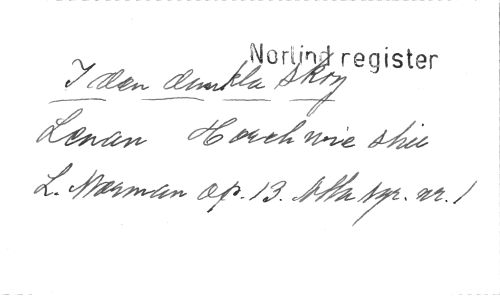 Norlind register
I den dunkla sky
Lenau Horch wie
L. Norman op. 13. Åtta sgr. nr. 1